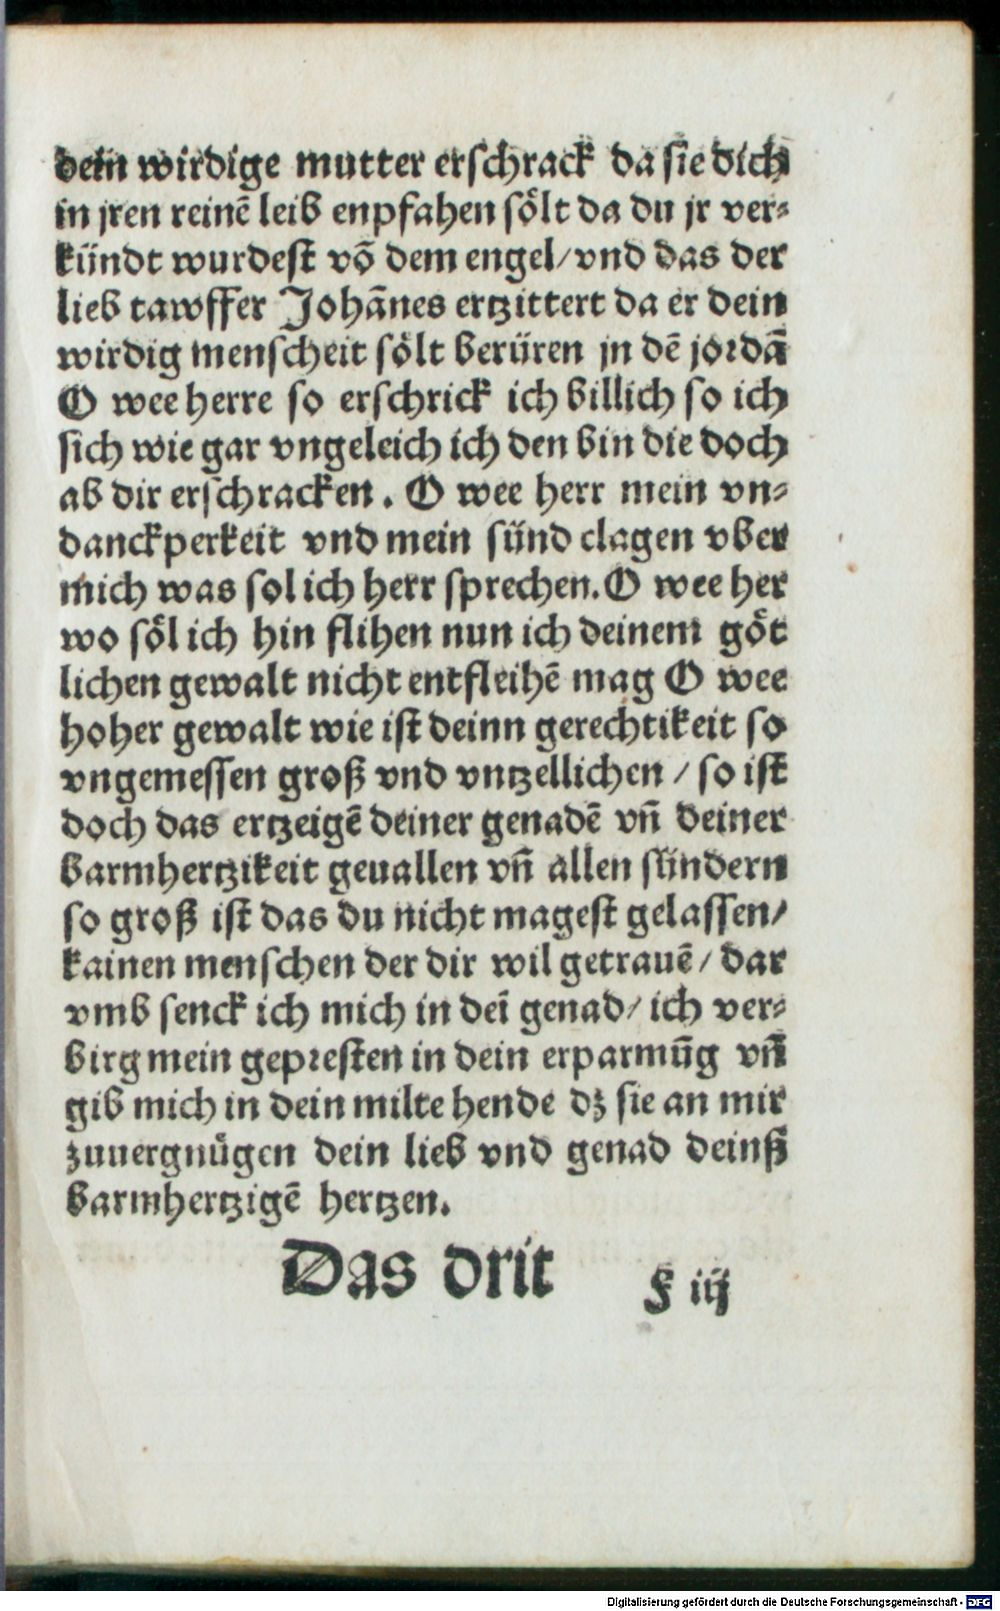 dein wirdige mutter erschrack da sie dich
in jren reinē leib enpfahen sölt da du jr ver⸗
kündt wurdest vō dem engel/vnd das der
lieb tawffer Johānes ertzittert da er dein
wirdig menscheit sölt berüren jn dē jordā
O wee herre so erschrick ich billich so ich
sich wie gar vngeleich ich den bin die doch
ab dir erschracken. O wee herr mein vn⸗
danckperkeit vnd mein sünd clagen vber
mich was sol ich herr sprechen. O wee her
wo söl ich hin flihen nun ich deinem göt
lichen gewalt nicht entfleihē mag O wee
hoher gewalt wie ist deinn gerechtikeit so
vngemessen groß vnd vntzellichen / so ist
doch das ertzeigē deiner genadē vn̄ deiner
barmhertzikeit geuallen vn̄ allen sündern
so groß ist das du nicht magest gelassen/
kainen menschen der dir wil getrauē/ dar
vmb senck ich mich in deī genad/ ich ver⸗
birg mein gepresten in dein erparmūg vn̄
gib mich in dein milte hende dz sie an mir
zuuergnügen dein lieb vnd genad deinß
barmhertzigē hertzen.
Das drit
F iij
Digitalisierung gefördert durch die Deutsche Forschungsgemeinschaft - DFG